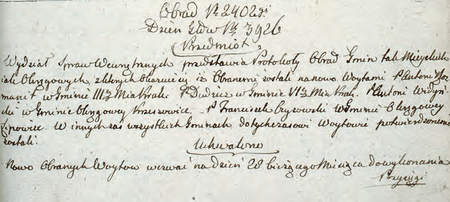 Obrad Nr 2402gi
Dzien. Głów Nr 3926
Przedmiot
Wydział Spraw Wewnętrznych przedstawia Protokoły Obrad Gmin tak Mieyskich
iako Okręgowych z których okazuie się iż Obranemi zostali na nowo Woytami P. Antoni
w Gminie III M. Krak. P. Dudzic w Gminie VI M. Krak. P. Antoni
w Gminie Okręgowey Kaszowice. P. Franciszek w Gminie Okręgowey
Lipowiec. W innych zaś wszystkich Gminach dotychczasowi Woytowie potwierdzonemi
zostali.
Uchwalono
Nowo Obranych Woytów wezwać na dzień 28 bieżącego Miesiąca do wykonania
Przysięgi